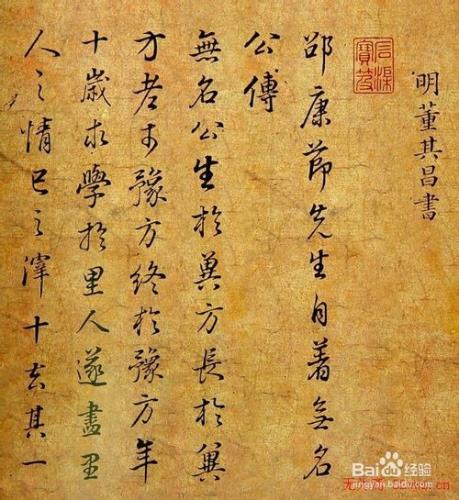 明董其昌書
邵康節先生自著無名
公傳
無名公生於冀方長於冀
方老於豫方終於豫方年
十歲求學於里人遂盡里
人之情己之滓十去其一
Baidu经验
jingyan.baidu.com